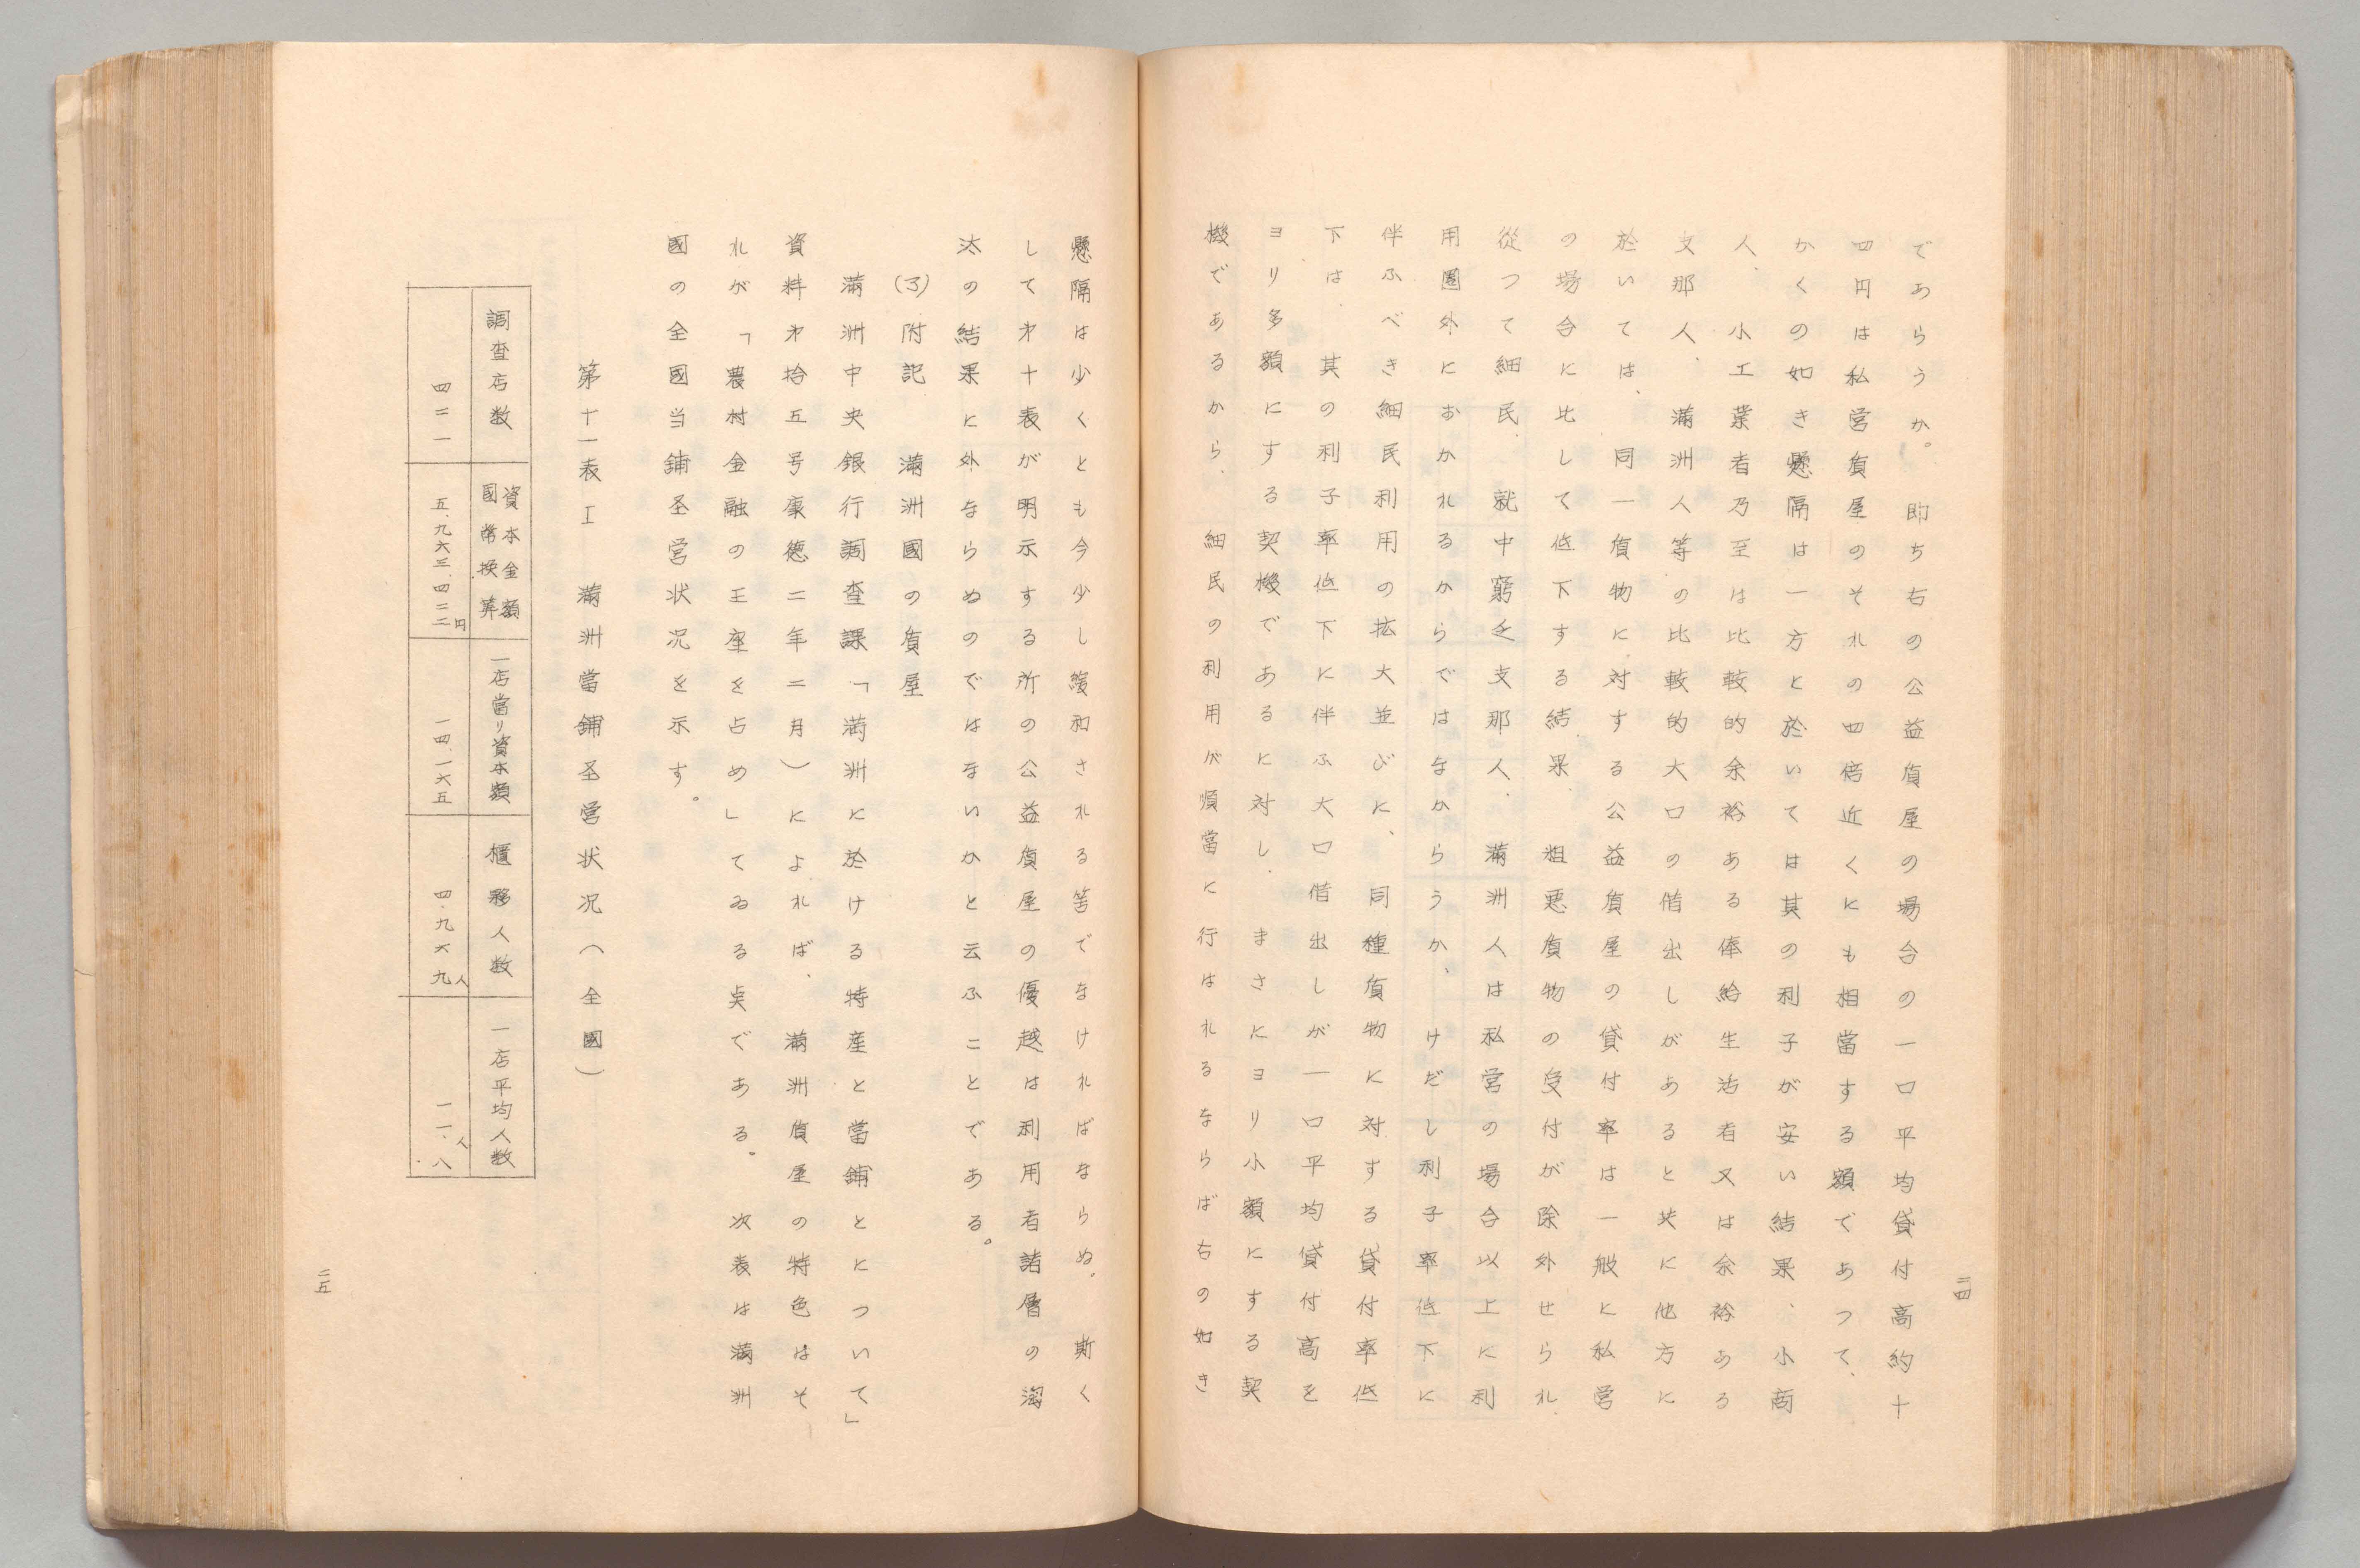 であらうか。即ち右の公益質屋の場合の一口平均貸付高約十
四円は私営質屋のそれの四倍近くにも相當する額であつて、
かくの如き懸隔は一方と於いては其の利子が安い結果、小商
人、小工業者乃至は比較的余裕ある俸給生活者又は余裕ある
支那人、滿洲人等の比較的大口の借出しがあると共に他方に
於いては、同一質物に対する公益質屋の貸付率は一般に私営
の場合に比して低下する結果、粗悪質物の受付が除外せられ、
從つて細民、就中窮乏支那人、滿洲人は私営の場合以上に利
用圏外におかれるからではなからうか、けだし利子率低下に
伴ふべき細民利用の拡大並びに、同種質物に対する貸付率低
下は、其の利子率低下に伴ふ大口借出しが一口平均貸付高を
ヨリ多額にする契機であるに対し、まさにヨリ小額にする契
機であるから、細民の利用が順當に行はれるならば右の如き
二四
懸隔は少くとも今少し緩和される筈でなければならぬ。斯く
して才十表が明示する所の公益質屋の優越は利用者諸層の淘
汰の結果に外ならぬのではないかと云ふことである。
(3)附記 滿洲國の質屋
滿洲中央銀行調査課「満洲に於ける特産と當鋪とについて」
資料才拾五号康徳二年二月)によれば、滿洲質屋の特色はそ
れが「農村金融の王座を占め」てゐる点である。次表は滿洲
國の全國当鋪圣営状况を示す。
第十一表 I 滿洲當鋪圣営状况(全國)
調査店数
資本金額
國幣換算
一店當リ資本額
櫃夥人数
一店平均人数
四二一
五、九六三、四二二円
一四、一六五
四、九六九人
一一、八人
二五